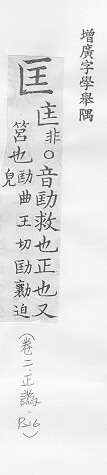 增廣字學舉隅
匡
𡈼非○音劻救也正也又
筥也劻曲王切劻勷迫
皃
(卷二·正譌·P.16)